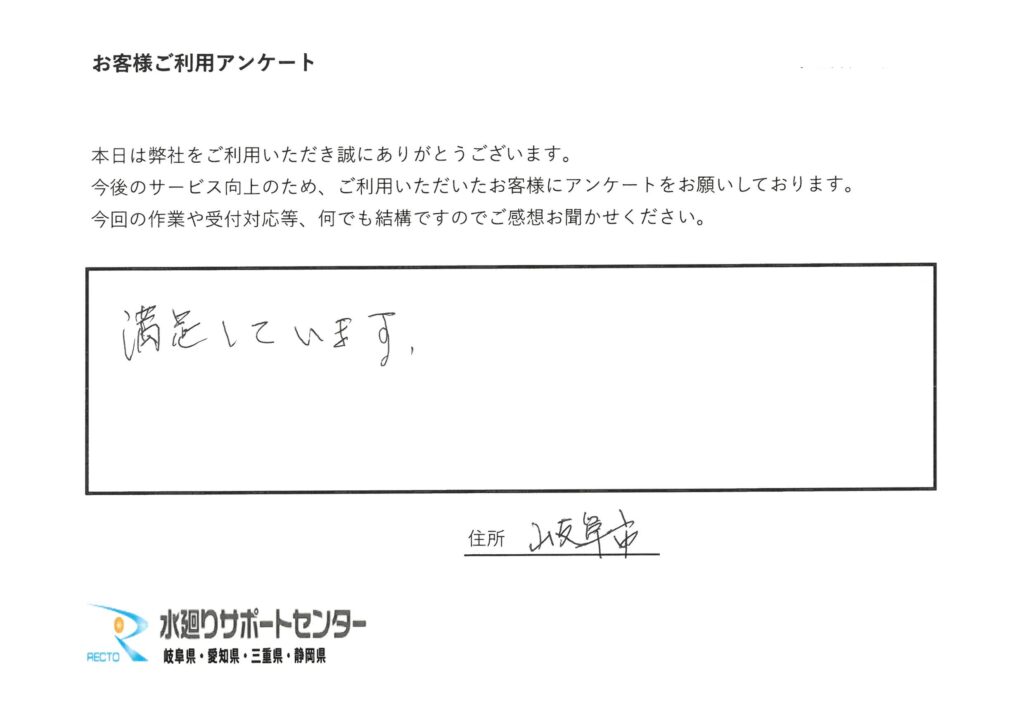 お客様ご利用アンケート
本日は弊社をご利用いただき誠にありがとうございます。
今後のサービス向上のため、ご利用いただいたお客様にアンケートをお願いしております。
今回の作業や受付対応等、何でも結構ですのでご感想お聞かせください。
満足しています.
住所 岐阜市
RECTO 水廻りサポートセンター
岐阜県・愛知県・三重県・静岡県